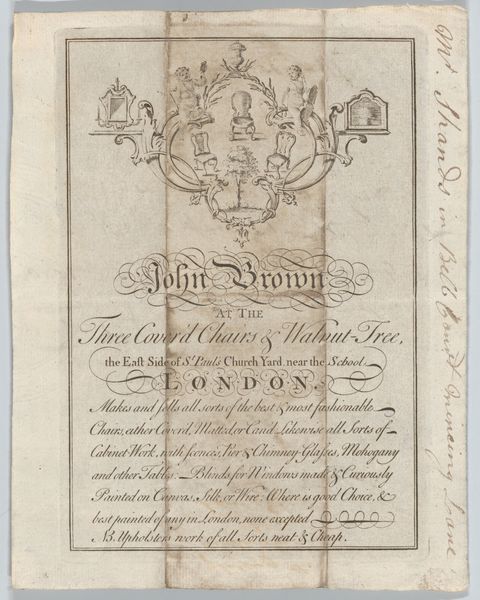 John Brown
AT THE
Three Cover'd Chairs & Walnut-Tree,
the East Side of St. Paul's Church Yard, near the School,
LONDON.
Makes and sells all sorts of the best & most fashionable
Chairs, either Cover'd, Matted, or Can'd. Likewise all Sorts of
Cabinet Work, with Sconces, Pier & Chimney-Glasses, Mohogany
and other Tables. Blinds for Windows made & Curiously
Painted on Canvas, Silk, or Wire: Where is good Choice, &
best painted of any in London, none excepted
NB. Upholsters work of all Sorts neat & Cheap.
Mr. Shands in Bell Court Mincing Lane